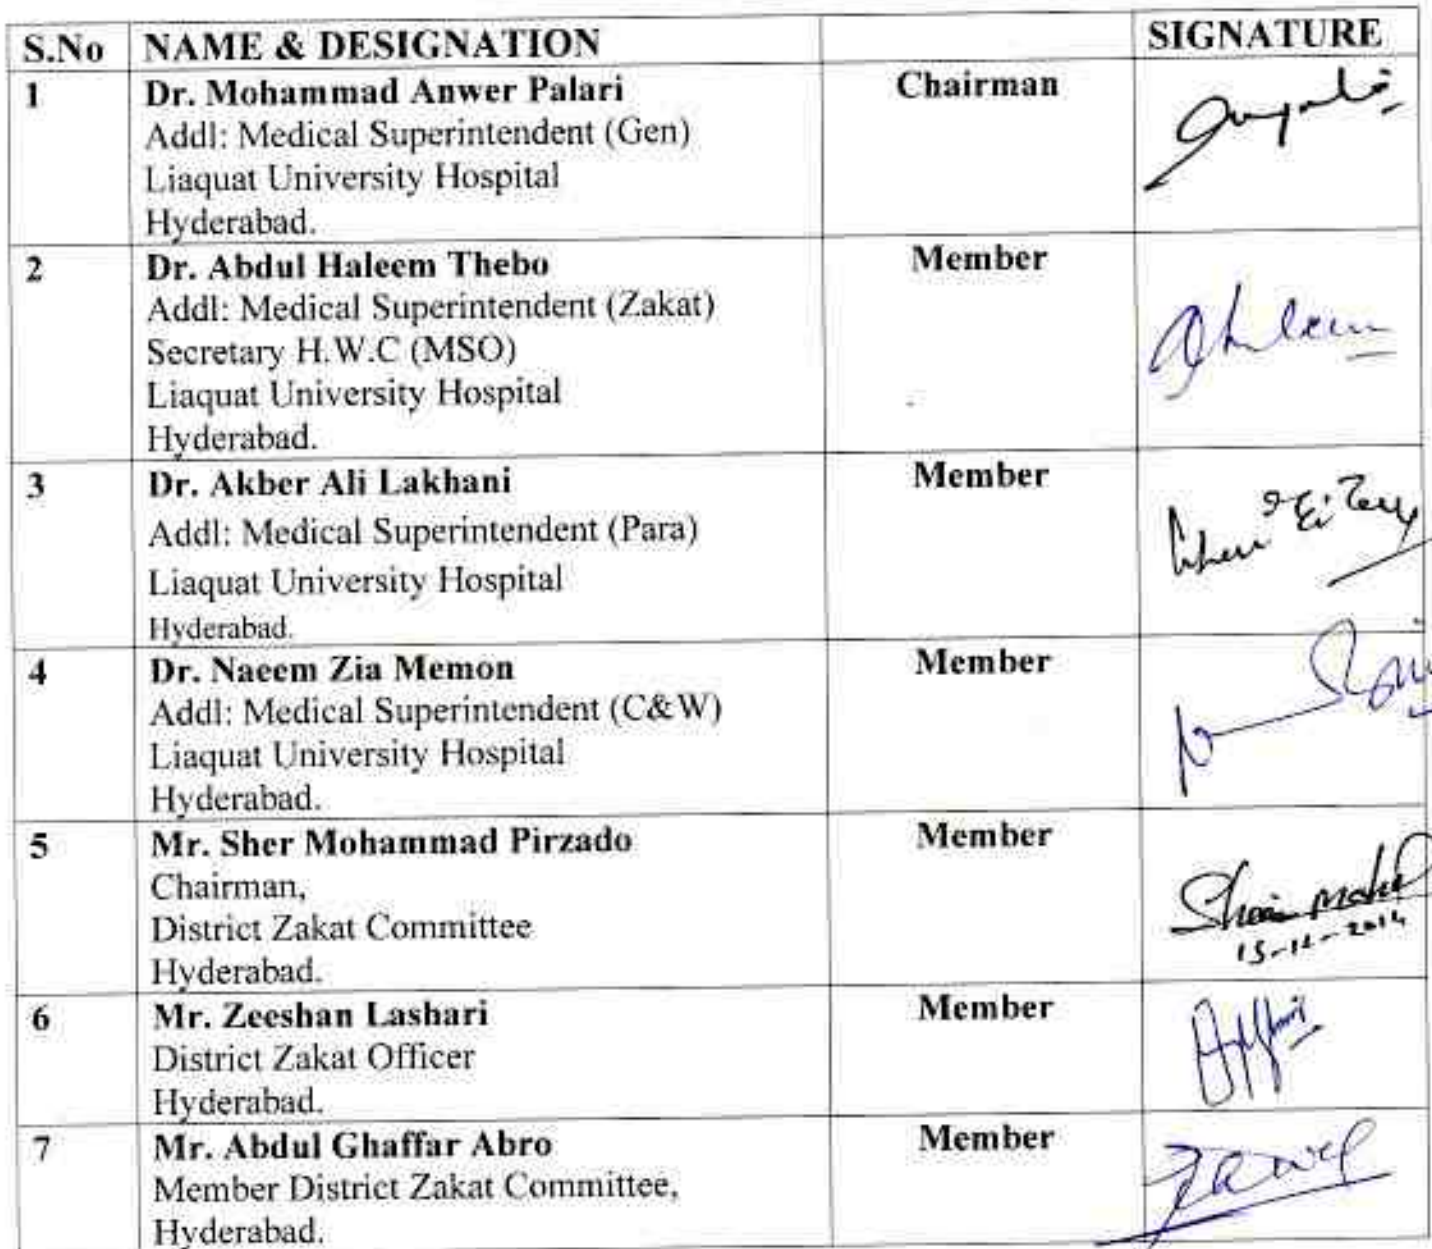 S.No NAME & DESIGNATION SIGNATURE
1 Dr. Mohammad Anwer Palari Chairman
Addl: Medical Superintendent (Gen)
Liaquat University Hospital
Hyderabad.
2 Dr. Abdul Haleem Thebo Member
Addl: Medical Superintendent (Zakat)
Secretary H.W.C (MSO)
Liaquat University Hospital
Hyderabad.
3 Dr. Akber Ali Lakhani Member
Addl: Medical Superintendent (Para)
Liaquat University Hospital
Hyderabad.
4 Dr. Naeem Zia Memon Member
Addl: Medical Superintendent (C&W)
Liaquat University Hospital
Hyderabad.
5 Mr. Sher Mohammad Pirzado Member
Chairman,
District Zakat Committee
Hyderabad.
6 Mr. Zeeshan Lashari Member
District Zakat Officer
Hyderabad.
7 Mr. Abdul Ghaffar Abro Member
Member District Zakat Committee,
Hyderabad.